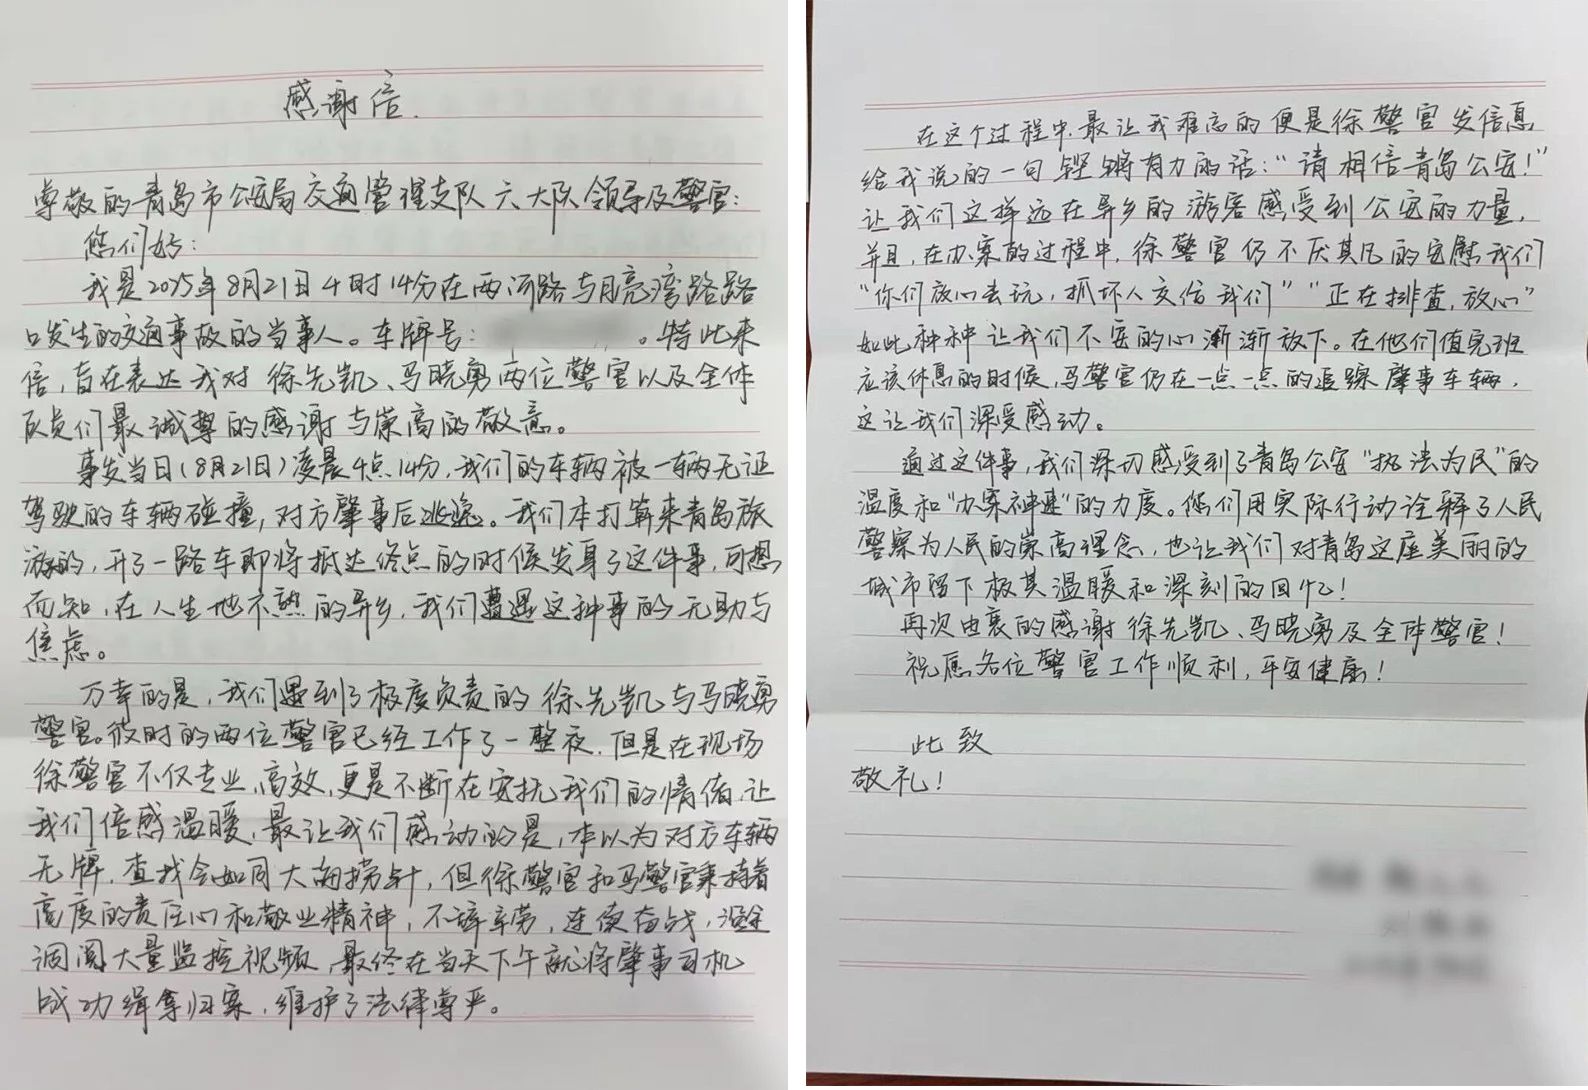 感谢信.
尊敬的青岛市公安局交通管理支队六大队领导及警官:
您们好:
我是2025年8月21日4时14分在两河路与月亮湾路路
口发生的交通事故的当事人。车牌号:。特此来
信,旨在表达我对徐先凯、马晓勇两位警官以及全体
队员们最诚挚的感谢与崇高的敬意。
事发当日(8月21日)凌晨4点14分,我们的车辆被一辆无证
驾驶的车辆碰撞,对方肇事后逃逸。我们本打算来青岛旅
游的,开了一路车即将抵达终点的时候发身了这件事,可想
而知,在人生地不熟的异乡,我们遭遇这种事的无助与
焦虑。
万幸的是,我们遇到了极度负责的徐先凯与马晓勇
警官。彼时的两位警官已经工作了一整夜,但是在现场
徐警官不仅专业、高效,更是不断在安抚我们的情绪,让
我们倍感温暖,最让我们感动的是,本以为对方车辆
无牌,查找会如同大海捞针,但徐警官和马警官秉持着
高度的责任心和敬业精神,不辞辛劳,连夜奋战,
调阅大量监控视频,最终在当天下午就将肇事司机
成功缉拿归案,维护了法律尊严。
在这个过程中,最让我难忘的便是徐警官发信息
给我说的一句铿锵有力的话:“请相信青岛公安!”
让我们这样远在异乡的游客感受到公安的力量,
并且,在办案的过程中,徐警官仍不厌其凡的安慰我们
“你们放心去玩,抓坏人交给我们”“正在排查,放心”
如此种种让我们不安的心渐渐放下。在他们值完班
应该休息的时候,马警官仍在一点一点的追踪肇事车辆,
这让我们深受感动。
通过这件事,我们深切感受到了青岛公安“执法为民”的
温度和“办案神速”的力度。您们用实际行动诠释了人民
警察为人民的崇高理念,也让我们对青岛这座美丽的
城市留下极其温暖和深刻的回忆!
再次由衷的感谢徐先凯、马晓勇及全体警官!
祝愿各位警官工作顺利,平安健康!
此致
敬礼!